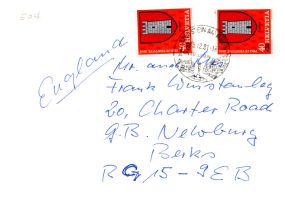 504
England
Mr. and Mrs
Frank Winstanley
20, Charter Road
G.B. Newburg
Berks
RG 15 - 9EB
40 HELVETIA
40 HELVETIA